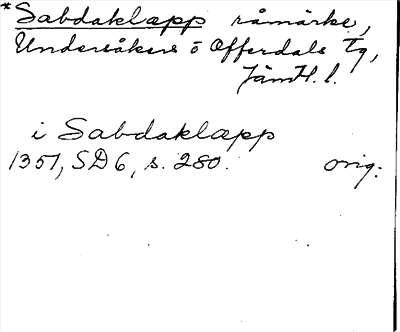 *Sabdaklæpp råmärke,
Undersåkers o Offerdals Tg,
Jämtl. l.
i Sabdaklæpp
1351, SD 6, s. 280. orig.